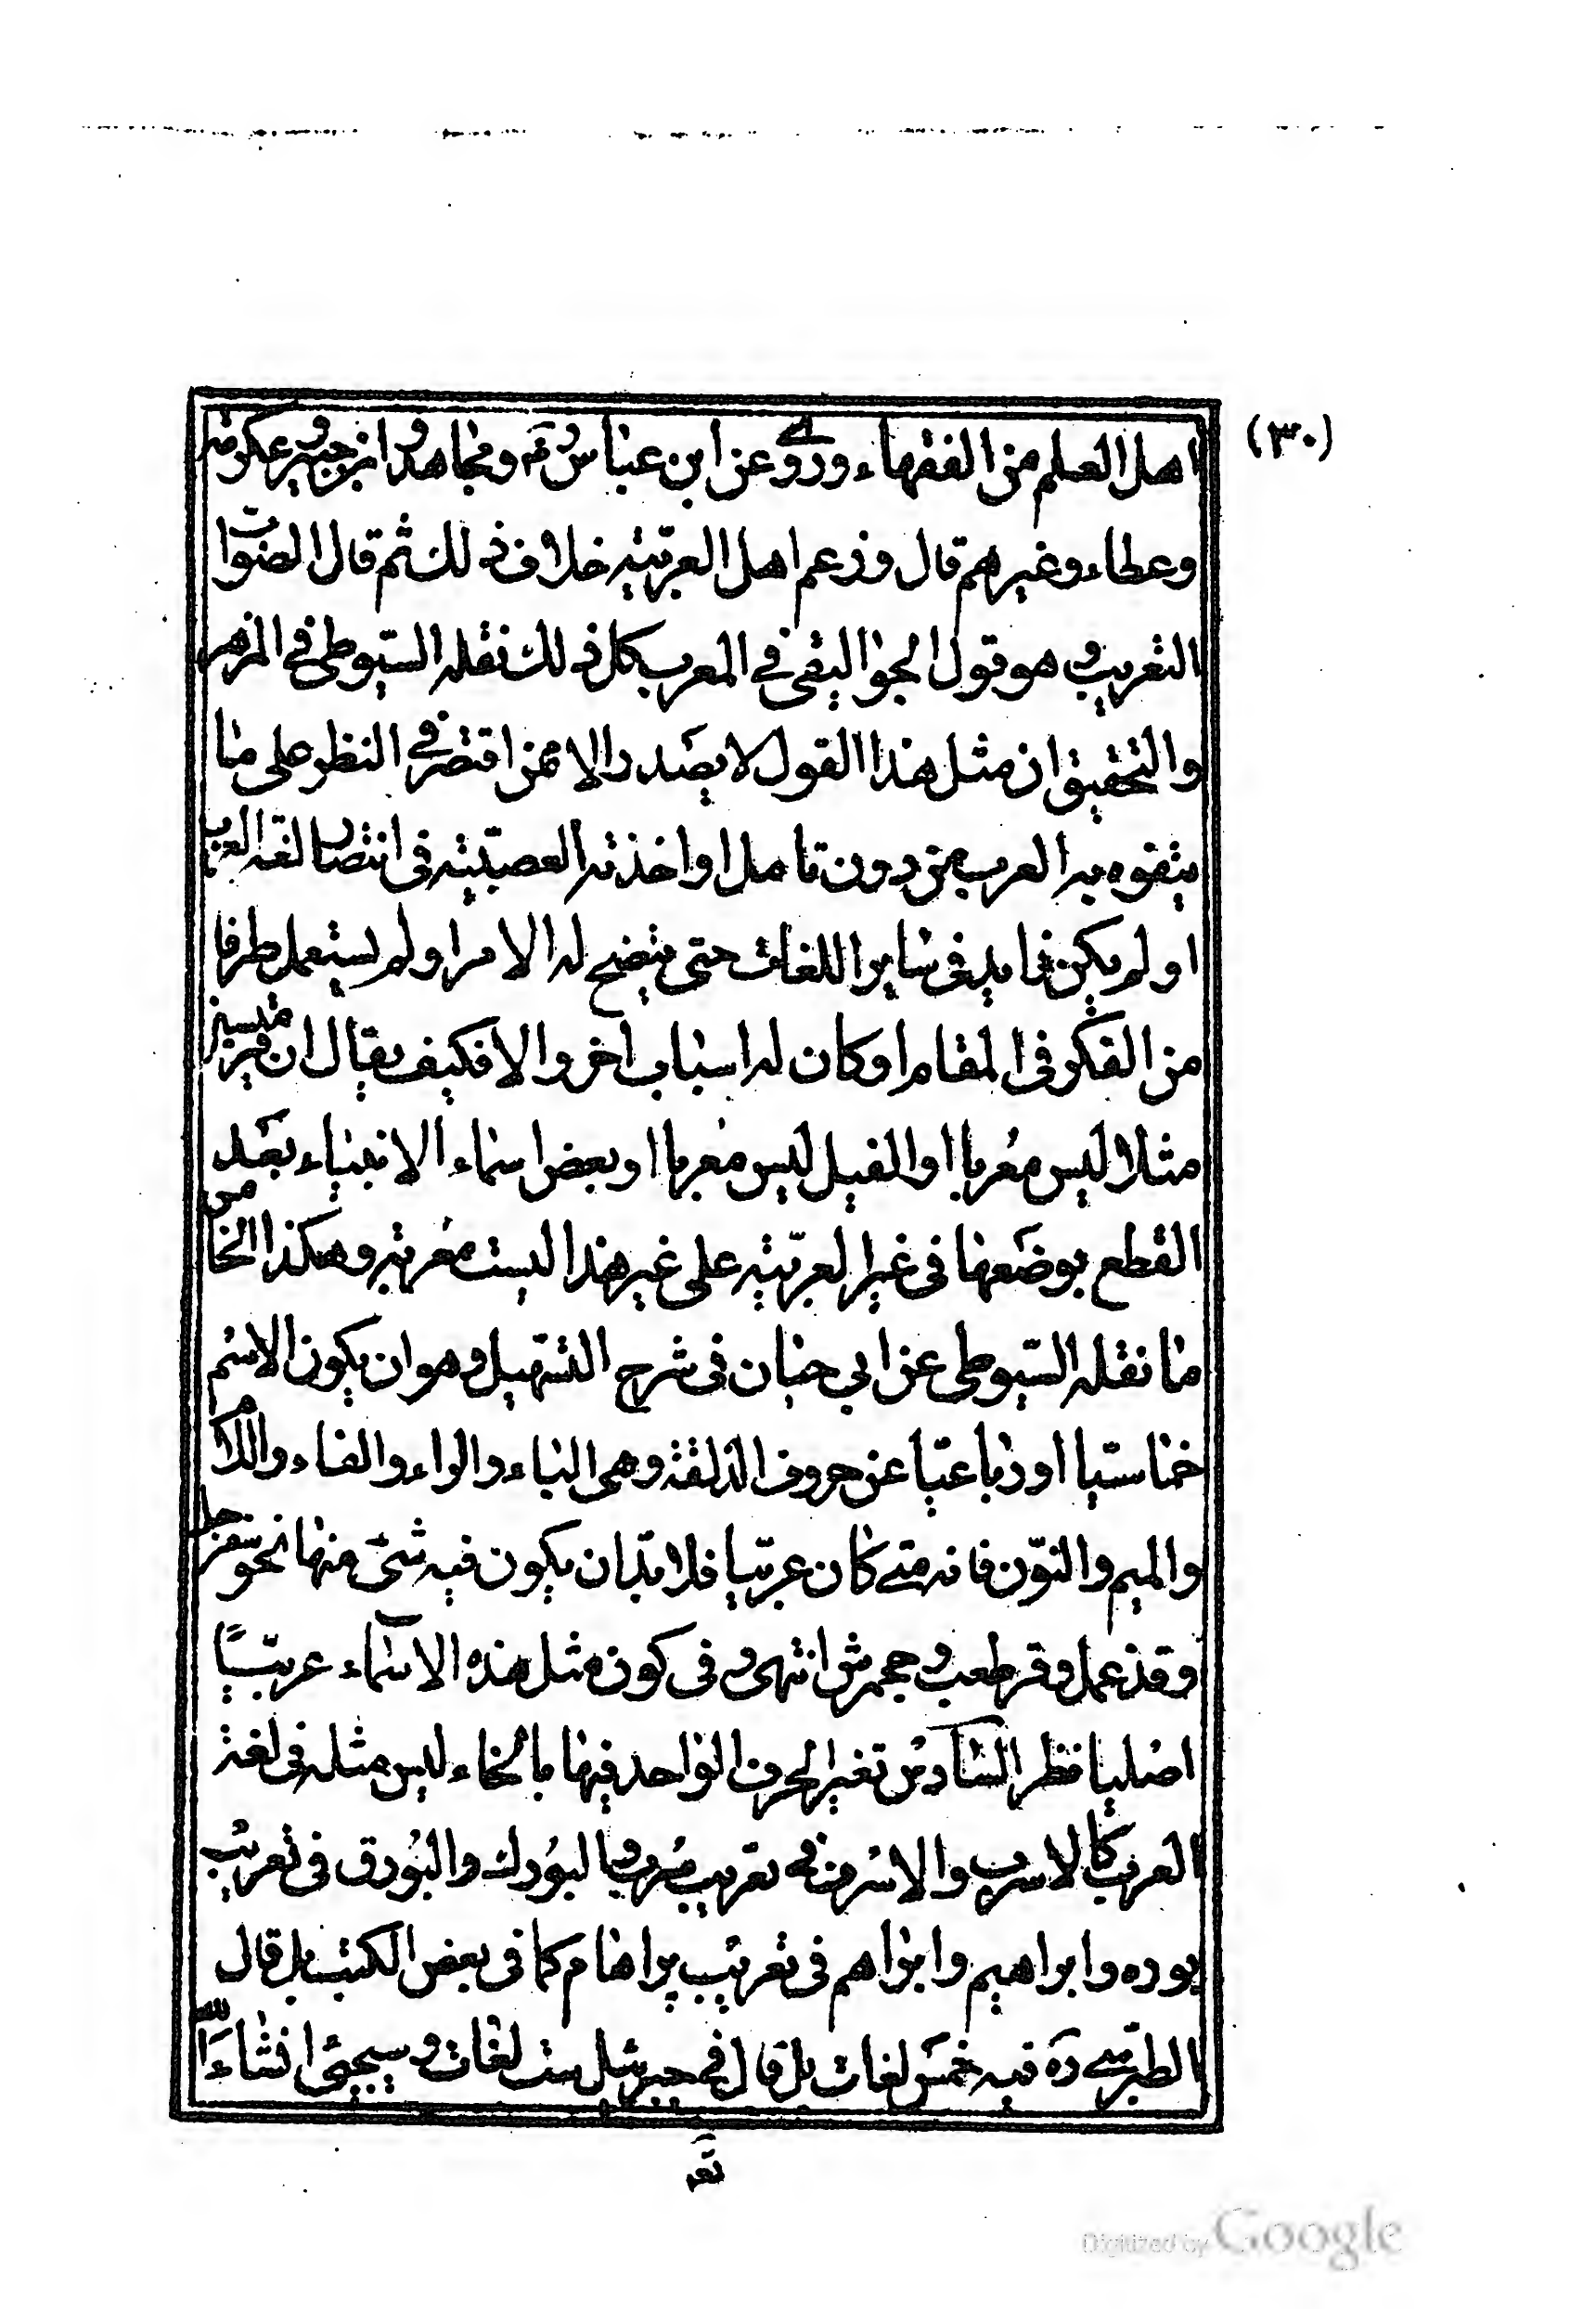 (٣٠)
اهل العلم من الفقهاء وروى عن ابن عباس ره ومجاهد وابن جبير وعكرمة
وعطاء وغيرهم قال وزعم اهل العربية خلاف ذلك ثم قال الصواب
التعريب وهو قول الجواليقى في المعرب كل ذلك نقله السيوطى في المزهر
والتحقيق ان مثل هذا القول لا يصدر الا ممن اقتصر في النظر على ما
يتفوه به العرب من دون تامل او اخذته العصبية فى انتصار لغة العرب
او لم يكن له يد فى ساير اللغات حتى يتضح له الامر او لم يستعمل طرفا
من الفكر فى المقام او كان له اسباب اخر والا فكيف يقال ان
مثلا ليس معربا او الفيل ليس معربا او بعض اسماء الانبياء بعد
القطع بوضعها فى غير العربية على غير هذا ليست معربة وهكذا الخامس
ما نقله السيوطى عن ابي حيان فى شرح التسهيل وهو ان يكون الاسم
خماسيا او رباعيا عن حروف الذلقة وهى الباء والراء والفاء واللام
والميم والنون فانه متى كان عربيا فلا بد ان يكون فيه شئ منها نحو سفرجل
وقذعمل وقرطعب وجحمرش انتهى و فى كون مثل هذه الاسماء عربيا
اصليا نظر السادس تغير الحرف الواحد فيها بانحاء ليس مثله فى لغة
العرب كالاسرب والاسرف في تعريب سرب والبورك والبورق فى تعريب
بوره وابراهيم وابراهم فى تعريب پراهام كما فى بعض الكتب بل قال
الطبرسي ره فيه خمس لغات بل قال في جبرئيل ست لغات وسيجيئ انشاء الله
تعر
Digitized by Google